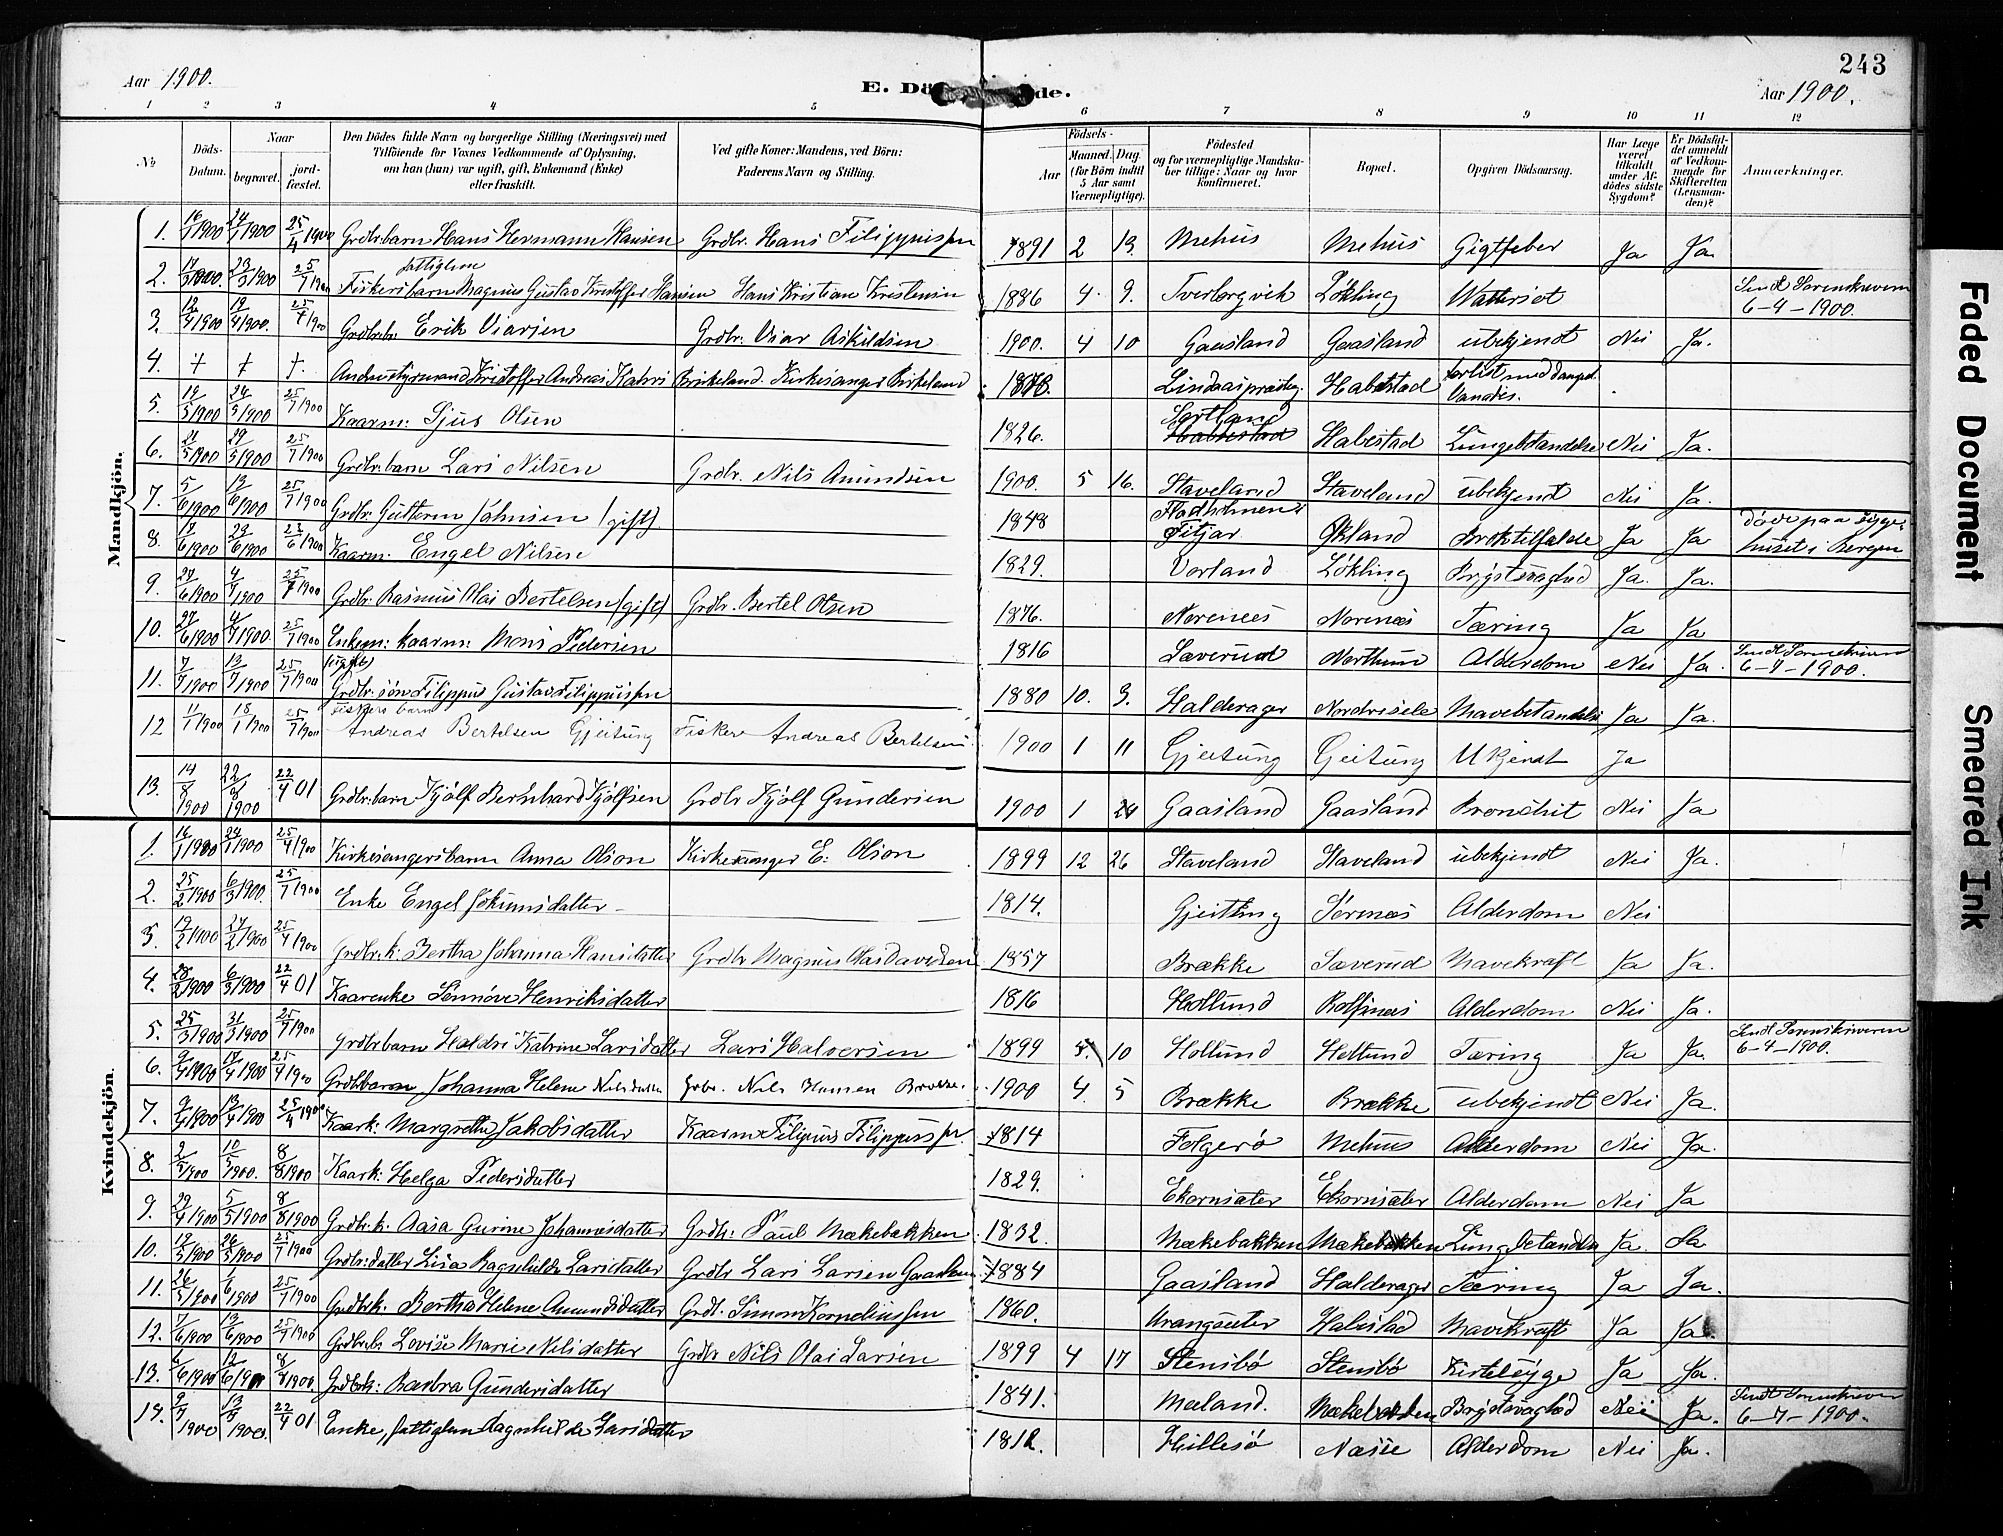 243
Aar 1900.
E. Dö de.
Aar 1900.
1 2 3 4 5 6 7 8 9 10 11 12
No
Döds-Datum.
Naar
begravet.
jord-fæstet.
Den Dödes fulde Navn og borgerlige Stilling (Næringsvei) med
Tilföiende for Voxnes Vedkommende af Oplysning,
om han (hun) var ugift, gift, Enkemand (Enke)
eller fraskilt.
Ved gifte Koner: Mandens, ved Börn:
Faderens Navn og Stilling.
Födsels-
Aar
Maaned. Dag
(for Börn indtil
5 Aar samt
Værnepligtige).
Födested
og for værnepligtige Mandska-
ber tillige: Naar og hvor
konfirmeret.
Bopæl.
Opgiven Dödsaarsag.
Har Læge
været
tilkaldt
under Af-
dödes sidste
Sygdom?
Er Dödsfal-
det anmeldt
af Vedkom-
mende for
Skifteretten
(Lensman-
den)?
Anmærkninger.
Mandkjön.
1. 16/1 1900 24/1 1900 25/4 1900 Grdbr.barn Hans Hermann Hansen Grdbr. Hans Filippussen 1891 2 13. Mehus Mehus Gigtfeber Ja Ja.
2. 17/3 1900. 23/3 1900 25/7 1900 fattiglem Fiskersbarn Magnus Gustav Kristoffer Hansen Hans Kristian Kristensen 1886 4. 9. Tverborgvik Lökling Vattersot Sendt Sorenskriveren 6-4-1900.
3. 12/4 1900 19/4 1900. 25/7 1900 Grdbr.b: Erik Viarsen Grdbr: Viar Askildsen 1900. 4 10 Gaasland Gaasland ubekjendt Nei Ja.
4. + + +. Andenstyrmand Kristoffer Andreas Birkeland. Kirkesanger Birkeland 1878. Lindaas præsteg. Habestad forlist med dampsk. Vanadis.
5. 19/5 1900 24/5 1900 25/7 1900 Kaarm: Sjur Olsen 1826. Sortland Habestad Habestad Lungebetændelse Nei Ja.
6. 21/5 1900 29/5 1900 25/7 1900 Grdbr.barn Lars Nilsen Grdbr. Nils Amundsen 1900. 5 16. Staveland Staveland ubekjendt Nei Ja.
7. 5/6 1900 13/6 1900 25/7 1900 Grdbr. Guttorm Johnsen (gift). 1848 Fladholmen i Fitjar Økland Broktilfælde Ja Ja döde paa syge-huset i Bergen
8. 17/6 1900 23/6 1900 23/6 1900 Kaarm: Engel Nilsen 1829. Vorland Lökling Brystsvaghed Ja. Ja.
9. 27/6 1900 4/7 1900 25/7 1900 Grdbr. Rasmus Olai Bertelsen (gift) Grdbr. Bertel Olsen 1876. Norenæs Norenæs Tæring Ja Ja
10. 27/6 1900 4/7 1900. 25/7 1900 Enkem: kaarm: Mons Pedersen 1816 Sæverud Nortun Alderdom Nei Ja. Sendt Sorenskriveren 6-7-1900.
11. 7/7 1900 13/7 1900 25/7 1900 (ugift) Grdbr: sön Filippus Gustav Filippussen 1880 10. 3. Halderager Nordvisele Mavebetændelse Ja Ja.
12 11/1 1900 18/1 1900 25/7 1900 Fiskers barn Andreas Bertelsen Gjeitung Fisker Andreas Bertelsen 1900 1 11 Gjeitung Gjeitung Ukjendt Ja
13. 14/8 1900 22/8 1900 22/4 01 Grdbr.barn Kjölf Bernhard Kjölfsen Grdbr Kjölf Gundersen 1900 1 24 Gaasland Gaasland Bronchit Nei Ja
Kvindekjön.
1. 16/1 1900 24/1 1900 25/4 1900 Kirkesangersbarn Anna Olson Kirkesanger E. Olson 1899 12 26 Staveland Staveland ubekjendt Nei Ja.
2. 25/2 1900 6/3 1900. 25/7 1900 Enke Engel Jokumsdatter 1814. Gjeitung Sörenes Alderdom Nei
3. 19/2 1900 27/2 1900 25/4 1900 Grdbr.k: Bertha Johanna Hansdatter Grdbr Magnus Olas Davidsen 1857 Brække Sæverud Mavekræft Ja Ja.
4. 28/2 1900 6/3 1900 22/4 01 Kaarenke Sennöve Henriksdatter 1816 Hollund Rolfsnæs Alderdom Nei Ja.
5. 25/3 1900 31/3 1900 25/7 1900 Grdbr.barn Haldri Katrine Larsdatter Lars Halversen 1899 5. 10 Hollund Hollund Tæring Ja Ja. Sendt Sorenskriveren 6-4-1900.
6. 9/4 1900 17/4 1900 25/7 1900 Grdbr.barn Johanna Helene Nilsdatter Grbr. Nils Hansen Brække. 1900 4. 5 Brække Brække ubekjendt Nei Ja.
7. 9/4 1900 13/4 1900 25/4 1900 Kaark: Margrethe Jakobsdatter Kaarm Filippus Filippussen. 1814 Folgerö Mehus Alderdom Nei Ja.
8. 2/5 1900 10/5 1900. 8/8 1900 Kaark: Helga Pedersdatter 1829. Ekornsæter Ekornsæter Alderdom Nei Ja
9. 29/4 1900 5/5 1900 8/8 1900 Grdbr.k: Aasa Gurine Johannesdatter Grdbr: Paul Mækebakken 1832. Mækebakken Mækebakken Lungebetændelse Ja. Ja
10. 19/5 1900 26/5 1900 25/7 1900 Grdbr:datter Lisa Ragnhilda Larsdatter Grdbr Lars Larsen Gaasland 1884 Gaasland Halderager Tæring Ja Ja.
11. 26/5 1900 1/6 1900 25/7 1900 Grdbrk. Bertha Helene Amundsdatter Grdb. Simon Korneliussen 1860. Vrangsæter Habestad Mavekræft Ja Ja.
12. 7/6 1900 13/6 1900 25/7 1900 Grdbr.b Lovise Marie Nilsdatter Grdbr Nils Olai Larsen 1899 4 17 Stensbö Stensbö Kirtelsyge Ja Ja.
13. 6/6 1900 12/6 1900 8/8 1900 Grdbrk: Barbra Gundersdatter 1841. Mæland. Mækebakken Brystsvaghed Nei Ja. Sendt Sorenskriver 6-7-1900.
14. 9/7 1900 13/7 1900 22/4 01 Enke, fattiglem Ragnhilde Larsdatter 1812. Hillesö Næsse Alderdom Nei Ja.
Faded Document
Smeared Ink